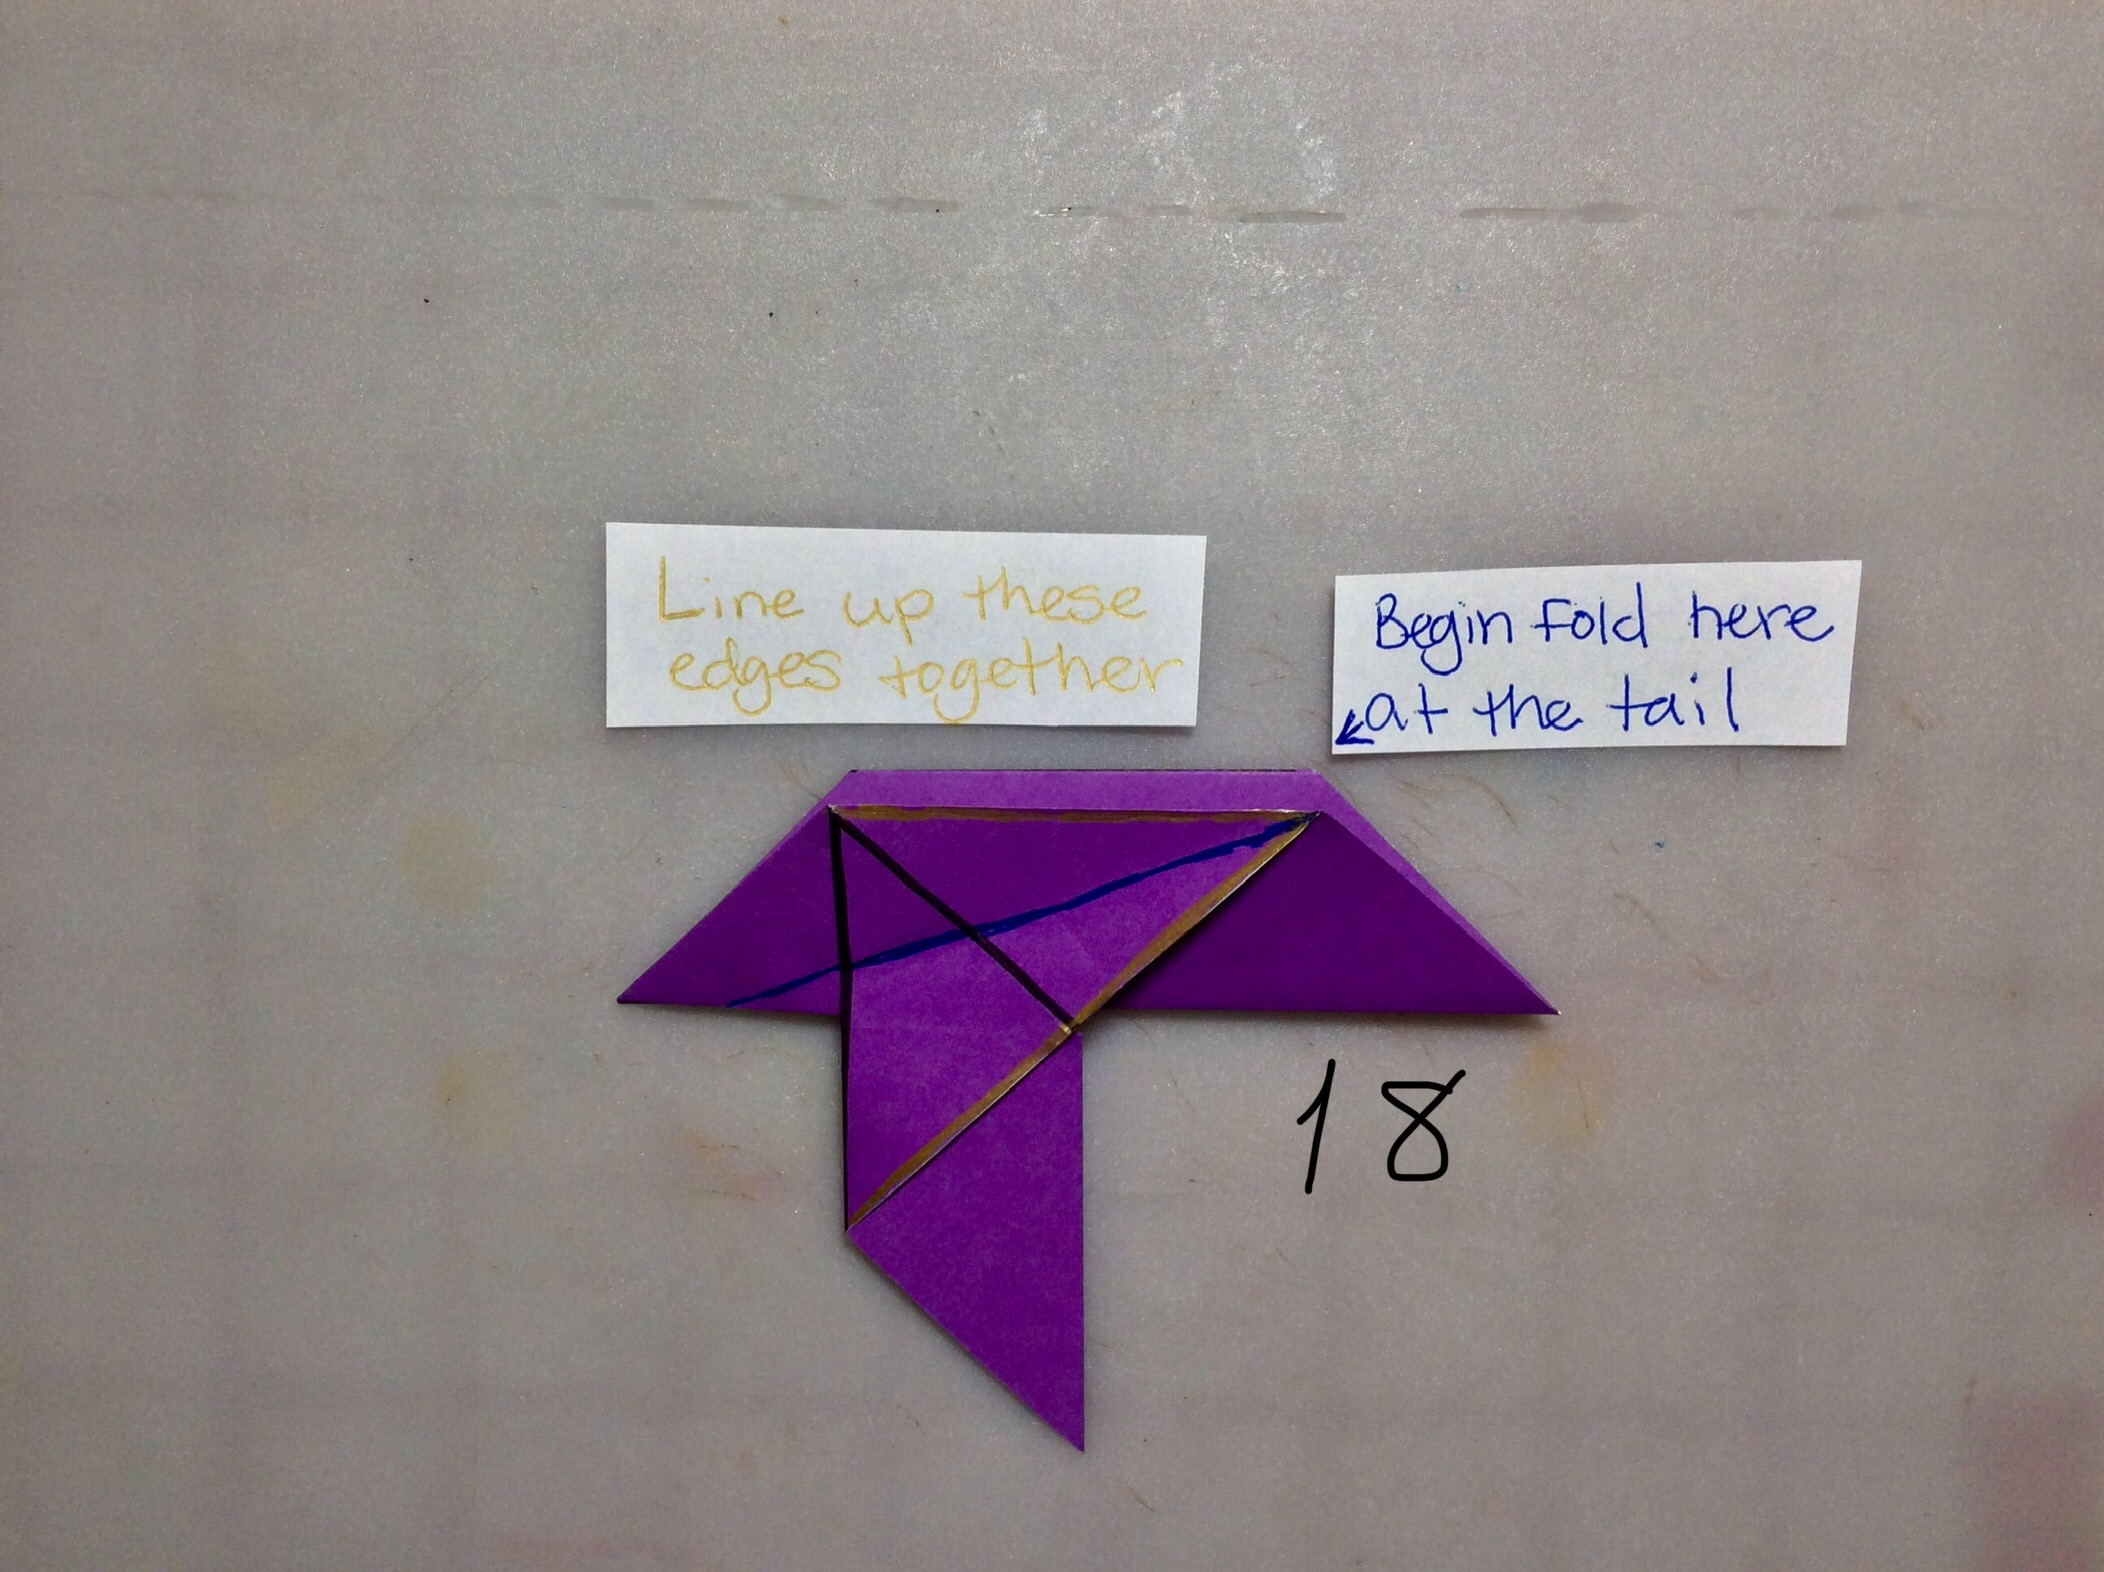 Line up these
edges together
Begin fold here
at the tail
18